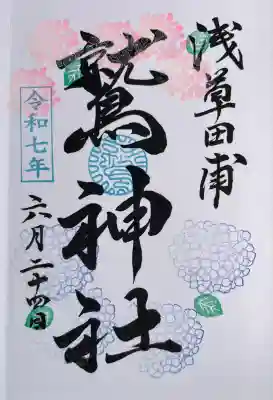 浅草田甫
鷲神社
令和七年
六月二十四日